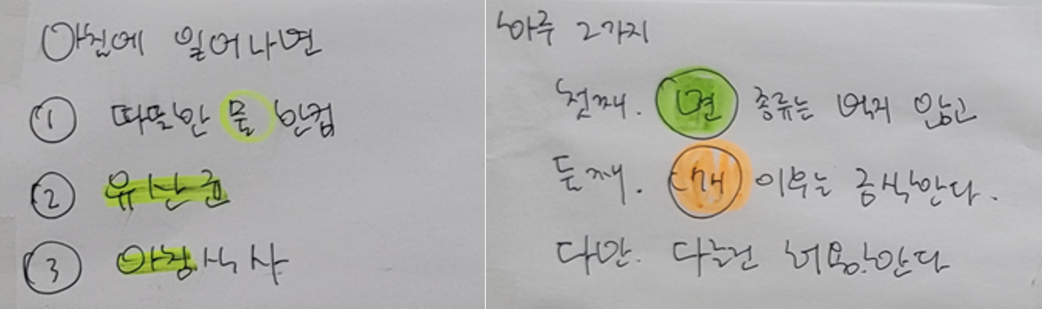 아침에 일어나면
① 따뜻한 물 한컵
② 유산균
③ 아침식사
하루 2가지
첫째. 면 종류는 먹지 않고
둘째. 이후는 금식한다.
다만. 다른건 허용한다